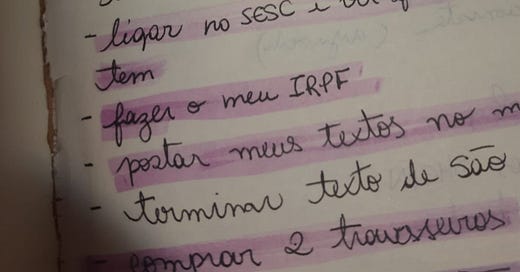 - ligar no SESC e
tem
- fazer o meu IRPF
- postar meus textos no m
- terminar texto de São
- comprar 2 travesseiros